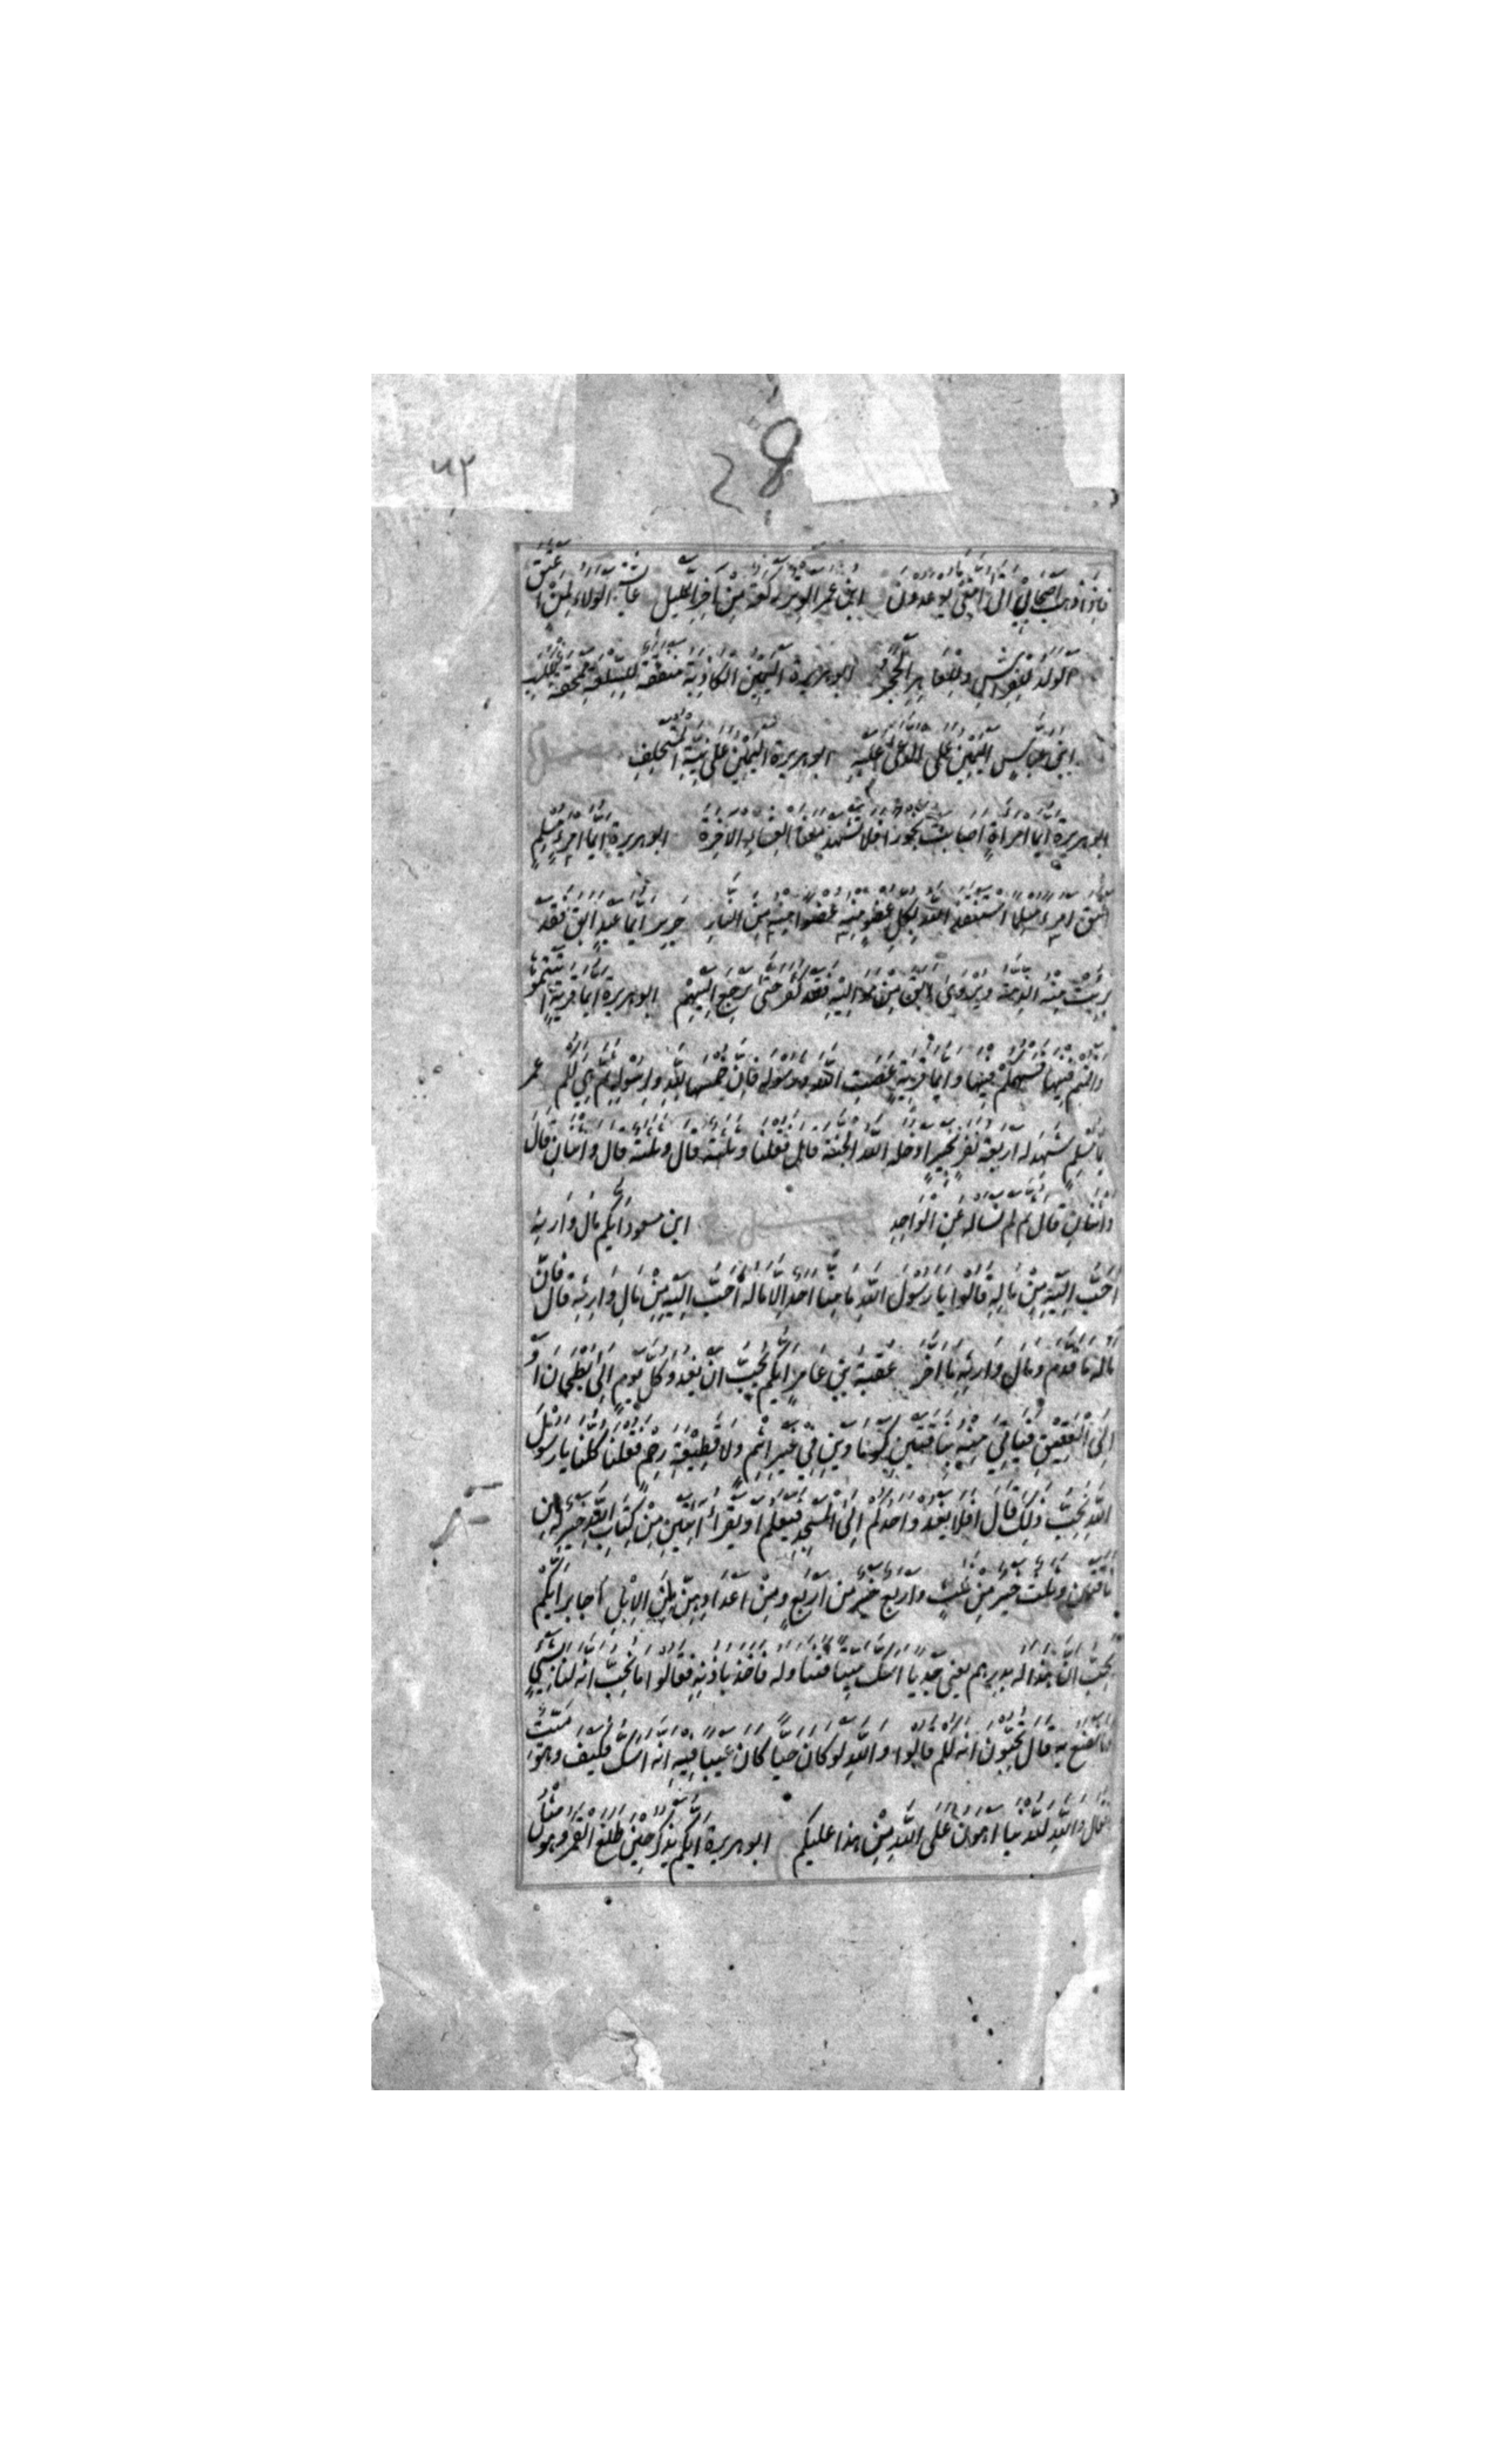 ۶۲
28
فَاِذَا ذَهَبَ اَصْحَابِيْ اَتٰى اُمَّتِيْ مَا يُوْعَدُوْنَ ابن عمر الوِتْرُ رَكْعَةٌ مِنْ اٰخِرِ اللَّيْلِ عائشة الوَلَاءُ لِمَنْ اَعْتَقَ
اَلْوَلَدُ لِلْفِرَاشِ وَلِلْعَاهِرِ الْحَجَرُ ابوهريرة اَلْيَمِيْنُ الْكَاذِبَةُ مَنْفَقَةٌ لِلسِّلْعَةِ مَمْحَقَةٌ
ابن عباس اَلْيَمِيْنُ عَلَى الْمُدَّعٰى عَلَيْهِ ابوهريرة اَلْيَمِيْنُ عَلٰى نِيَّةِ الْمُسْتَحْلِفِ
ابوهريرة اَيُّمَا امْرَاَةٍ اَصَابَتْ بَخُوْرًا فَلَا تَشْهَدْ مَعَنَا الْعِشَاءَ الْاٰخِرَةَ ابوهريرة اَيُّمَا امْرِئٍ مُسْلِمٍ
اَعْتَقَ امْرَءًا مُسْلِمًا اسْتَنْقَذَ اللهُ بِكُلِّ عُضْوٍ مِنْهُ عُضْوًا مِنْهُ مِنَ النَّارِ جرير اَيُّمَا عَبْدٍ اَبَقَ فَقَدْ
بَرِئَتْ مِنْهُ الذِّمَّةُ وَيُرْوٰى اَبَقَ مِنْ مَوَالِيْهِ فَقَدْ كَفَرَ حَتّٰى يَرْجِعَ اِلَيْهِمْ ابوهريرة اَيُّمَا قَرْيَةٍ اَتَيْتُمُوْهَا
وَاَقَمْتُمْ فِيْهَا فَسَهْمُكُمْ فِيْهَا وَاَيُّمَا قَرْيَةٍ عَصَتِ اللهَ وَرَسُوْلَهُ فَاِنَّ خُمُسَهَا لِلّٰهِ وَلِرَسُوْلِهِ ثُمَّ هِيَ لَكُمْ عمر
اَيُّمَا مُسْلِمٍ شَهِدَ لَهُ اَرْبَعَةُ نَفَرٍ بِخَيْرٍ اَدْخَلَهُ اللهُ الْجَنَّةَ قال فَقُلْنَا وَثَلٰثَةٌ قال وَثَلٰثَةٌ قال وَاثْنَانِ قَالَ
وَاثْنَانِ قَالَ ثُمَّ لَمْ نَسْاَلْهُ عَنِ الْوَاحِدِ ابن مسعود اَيُّكُمْ مَالُ وَارِثِهِ
اَحَبُّ اِلَيْهِ مِنْ مَالِهِ قَالُوْا يَا رَسُوْلَ اللهِ مَا مِنَّا اَحَدٌ اِلَّا مَالُهُ اَحَبُّ اِلَيْهِ مِنْ مَالِ وَارِثِهِ قَالَ فَاِنَّ
مَالَهُ مَا قَدَّمَ وَمَالَ وَارِثِهِ مَا اَخَّرَ عُقْبَة بن عَامِر اَيُّكُمْ يُحِبُّ اَنْ يَغْدُوَ كُلَّ يَوْمٍ اِلٰى بُطْحَانَ اَوْ
اِلَى الْعَقِيْقِ فَيَاْتِيَ مِنْهُ بِنَاقَتَيْنِ كَوْمَاوَيْنِ فِيْ غَيْرِ اِثْمٍ وَلَا قَطِيْعَةِ رَحِمٍ فَقُلْنَا كُلُّنَا يَا رَسُوْلَ
اللهِ نُحِبُّ ذٰلِكَ قَالَ اَفَلَا يَغْدُوْ اَحَدُكُمْ اِلَى الْمَسْجِدِ فَيُعَلِّمَ اَوْ يَقْرَاَ اٰيَتَيْنِ مِنْ كِتَابِ اللهِ خَيْرٌ لَهُ مِنْ
نَاقَتَيْنِ وَثَلٰثٌ خَيْرٌ مِنْ ثَلٰثٍ وَاَرْبَعٌ خَيْرٌ مِنْ اَرْبَعٍ وَمِنْ اَعْدَادِهِنَّ مِنَ الْاِبِلِ جابر اَيُّكُمْ
يُحِبُّ اَنَّ هٰذَا لَهُ بِدِرْهَمٍ يعني جَدْيًا اَسَكَّ مَيِّتًا فَتَنَاوَلَهُ فَاَخَذَ بِاُذُنِهِ فَقَالُوْا مَا نُحِبُّ اَنَّهُ لَنَا بِشَيْءٍ
وَمَا نَصْنَعُ بِهِ قَالَ تُحِبُّوْنَ اَنَّهُ لَكُمْ قَالُوْا وَاللهِ لَوْ كَانَ حَيًّا كَانَ عَيْبًا فِيْهِ اَنَّهُ اَسَكُّ فَكَيْفَ وَهُوَ مَيِّتٌ
فَقَالَ وَاللهِ لَلدُّنْيَا اَهْوَنُ عَلَى اللهِ مِنْ هٰذَا عَلَيْكُمْ ابوهريرة اَيُّكُمْ يَذْكُرُ حِيْنَ طَلَعَ الْقَمَرُ وَهُوَ مِثْلُ